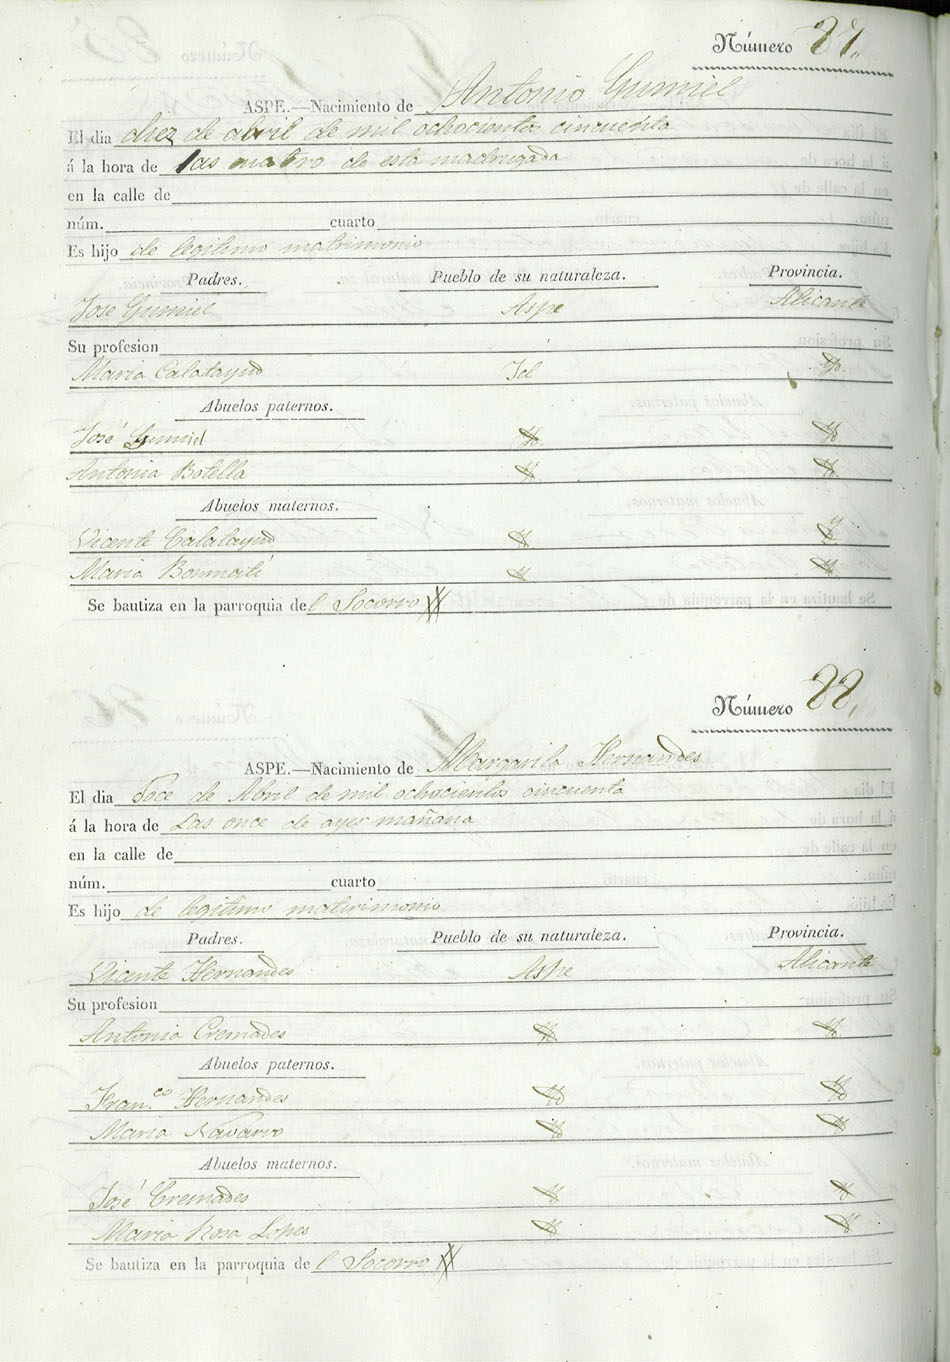 Número 87.
ASPE.—Nacimiento de Antonio Gumiel
El dia diez de abril de mil ochocientos cincuenta
á la hora de las cuatro de esta madrugada
en la calle de
núm. cuarto
Es hijo de legitimo matrimonio
Padres. Pueblo de su naturaleza. Provincia.
Jose Gumiel Aspe Alicante
Su profesion
Maria Calatayud Id
Abuelos paternos.
José Gumiel
Antonia Botella
Abuelos maternos.
Vicente Calatayud
Maria Bonmati
Se bautiza en la parroquia del Socorro
Número 88.
ASPE.—Nacimiento de Margarita Hernandes
El dia Doce de Abril de mil ochocientos cincuenta
á la hora de Las once de ayer mañana
en la calle de
núm. cuarto
Es hijo de legitimo matirimonio
Padres. Pueblo de su naturaleza. Provincia.
Vicente Hernandes Aspe Alicante
Su profesion
Antonia Cremades
Abuelos paternos.
Fran.co Hernandes
Maria Navarro
Abuelos maternos.
José Cremades
Maria Rosa Lopes
Se bautiza en la parroquia del Socorro